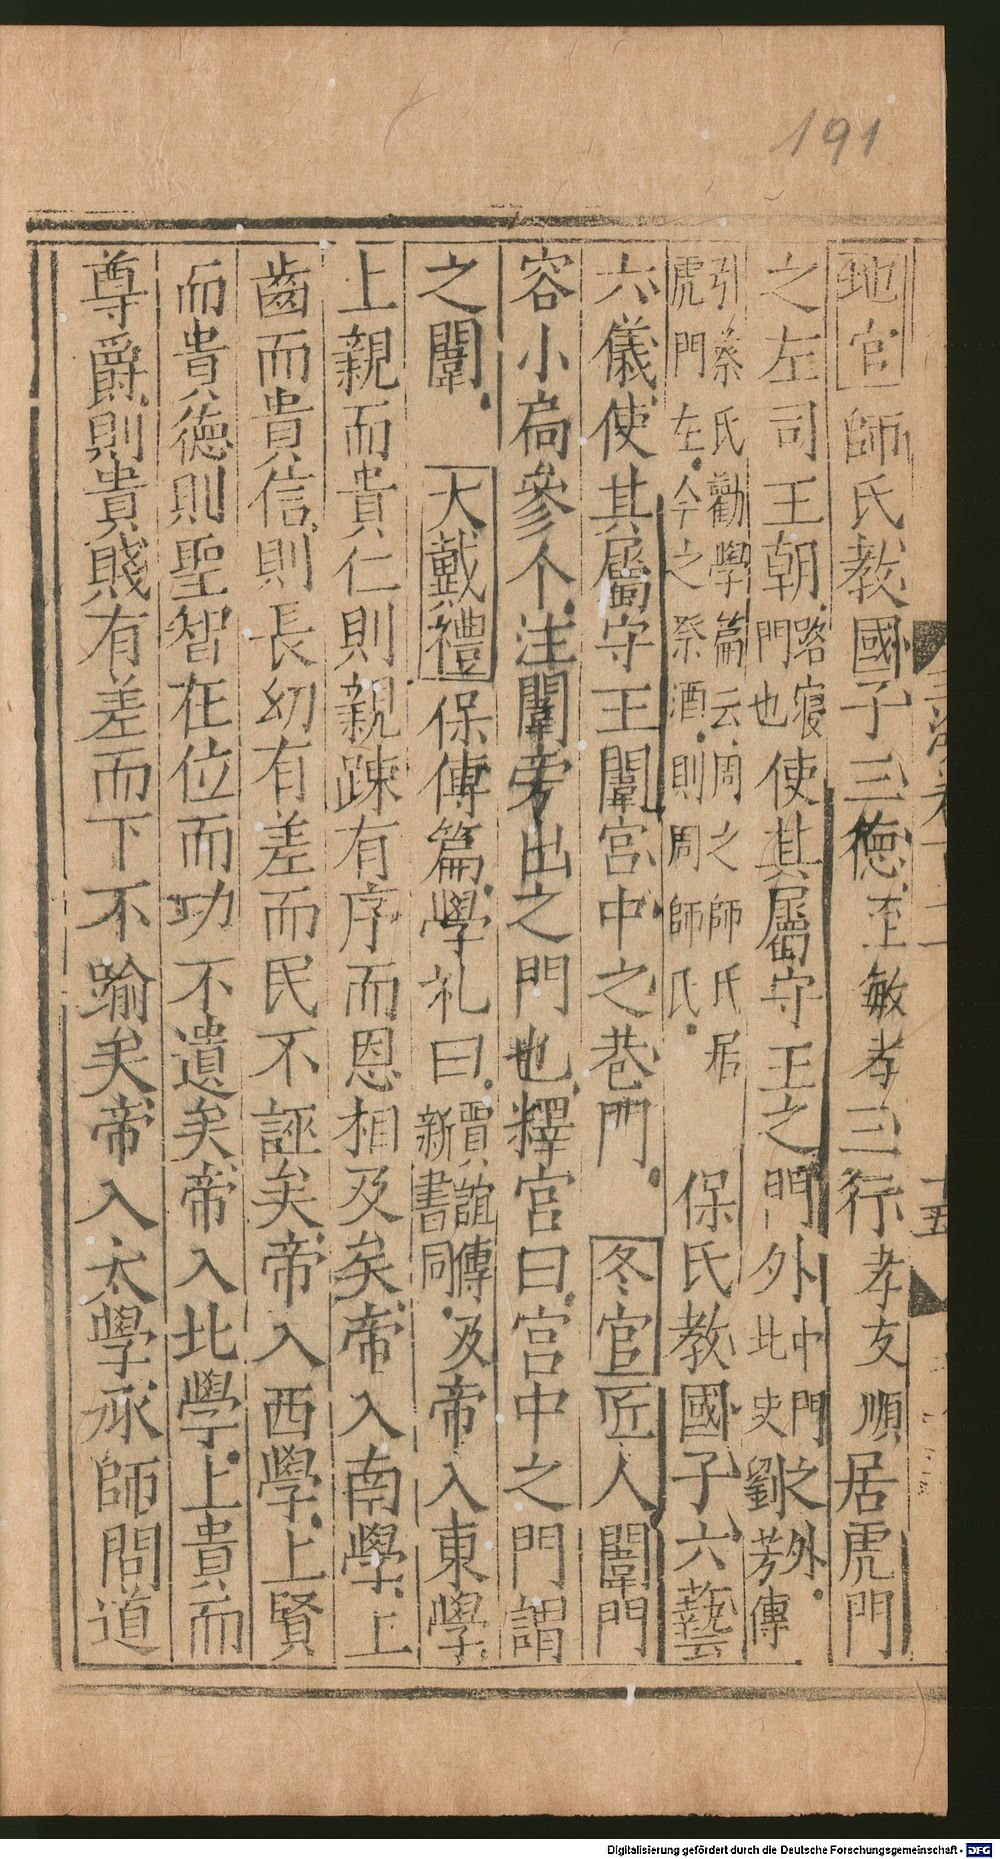 191
地官師氏教國子三德至敏孝三行孝友順居虎門
之左司王朝路寢門也使其屬守王之門外中門之外北史劉芳傳
引蔡氏勸學篇云周之師氏居虎門左今之祭酒則周師氏保氏教國子六藝
六儀使其屬守王闈宮中之巷門冬官匠人闈門
容小扃參个注闈旁出之門也釋宮曰宮中之門謂
之闈大戴禮保傅篇學礼曰賈誼傳新書同及帝入東學
上親而貴仁則親疎有序而恩相及矣帝入南學上
齒而貴信則長幼有差而民不誣矣帝入西學上賢
而貴德則聖智在位而功不遺矣帝入北學上貴而
尊爵則貴賤有差而下不踰矣帝入太學承師問道
Digitalisierung gefördert durch die Deutsche Forschungsgemeinschaft - DFG